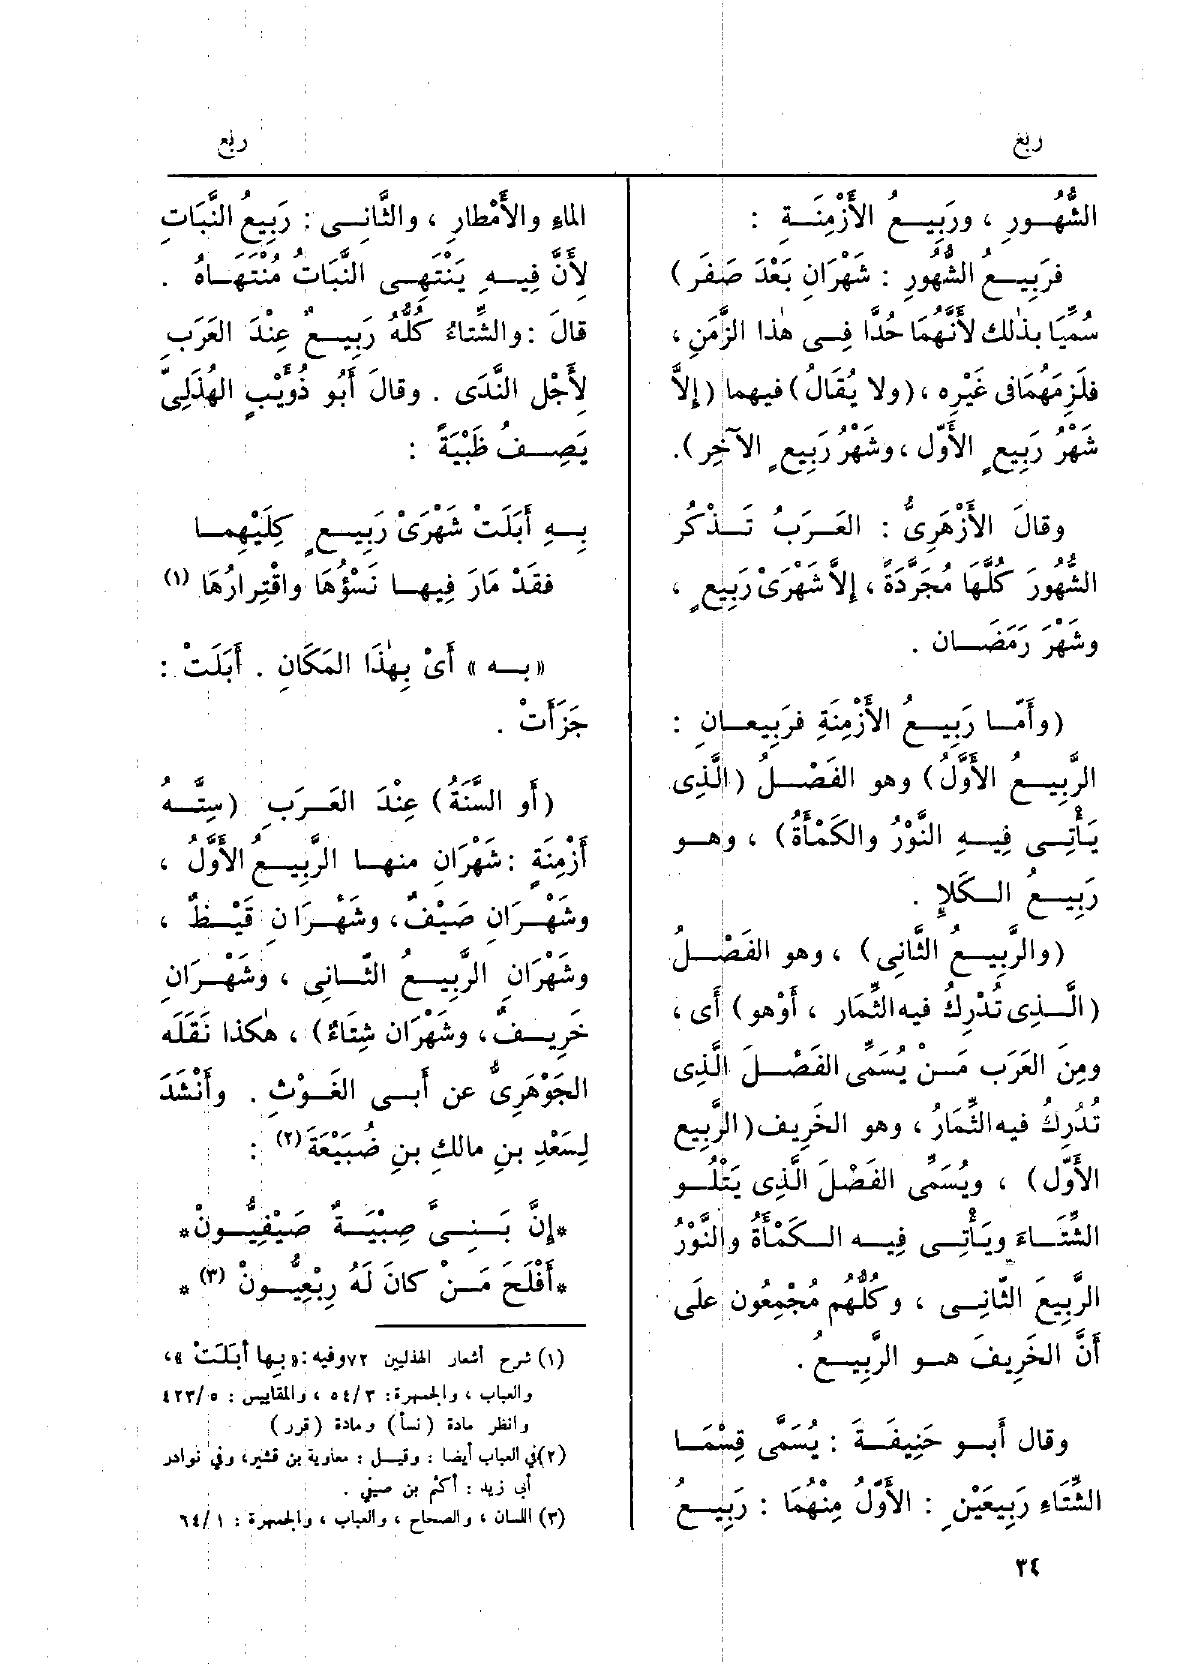 ربع
ربع
الشُّهُورِ ، ورَبِيعُ الأَزْمِنَةِ :
فرَبِيعُ الشُّهُورِ : شَهْرَانِ بَعْدَ صَفَر )
سُمِّيَا بذٰلك لأَنَّهُمَا حُدَّا فِى هٰذا الزَّمَنِ ،
فلَزِمَهُمَافى غَيْرِه ، (ولا يُقَالُ) فيهما (إِلاَّ
شَهْرُ رَبِيعٍ الأَوَّل ، وشَهْرُ رَبِيعٍ الآخِر).
وقالَ الأَزْهَرِىُّ : العَرَبُ تَذْكُر
الشُّهُورَ كُلَّهَا مُجَرَّدَةً ، إِلاَّ شَهْرَىْ رَبِيعٍ ،
وشَهْرَ رَمَضَان .
(وأَمَّا رَبِيعُ الأَزْمِنَةِ فرَبِيعانِ :
الرَّبِيعُ الأَوَّلُ) وهو الفَصْلُ (الَّذِى
يَأْتِى فِيهِ النَّوْرُ والكَمْأَةُ) ، وهو
رَبِيعُ الكَلإِ .
(والرَّبِيعُ الثَّانِى) ، وهو الفَصْلُ
(الَّذِى تُدْرِكُ فيه الثِّمَار ، أَوْهو) أَى ،
ومِنَ العَرَب مَنْ يُسَمِّى الفَصْلَ الَّذِى
تُدْرِكُ فيه الثِّمَارُ ، وهو الخَرِيف(الرَّبِيع
الأَوّل) ، ويُسَمِّى الفَصْلَ الَّذِى يَتْلُو
الشِّتَاءَ ويَأْتِى فِيه الكَمْأَةُ والنَّوْرُ
الرَّبِيعَ الثّانِى ، وكُلُّهُم مُجْمِعُون علَى
أَنَّ الخَرِيفَ هو الرَّبِيعُ .
وقال أَبو حَنِيفَةَ : يُسَمَّى قِسْمَا
الشِّتَاءِ رَبِيعَيْنِ : الأَوّلُ مِنْهُمَا : رَبِيعُ
الماءِ والأَمْطارِ ، والثَّانِى : رَبِيعُ النَّبَاتِ
لِأَنَّ فِيهِ يَنْتَهِى النَّبَاتُ مُنْتَهَاهُ .
قالَ : والشِّتاءُ كُلُّهُ رَبِيعٌ عِنْدَ العَرَبِ
لِأَجْلِ النَّدَى . وقالَ أَبُو ذُؤَيْبٍ الهُذَلِىّ
يَصِفُ ظَبْيَةً :
بِهِ أَبَلَتْ شَهْرَىْ رَبِيعٍ كِلَيْهِما
فقَدْ مَارَ فِيها نَسْؤُهَا واقْتِرارُهَا (١)
«به» أَىْ بِهٰذَا المَكَانِ . أَبَلَتْ :
جَزَأَتْ .
(أَو السَّنَةُ) عِنْدَ العَرَبِ (سِتَّهُ
أَزْمِنَةٍ : شَهْرَانِ منها الرَّبِيعُ الأَوَّلُ ،
وشَهْرَانِ صَيْفٌ ، وشَهْرَانِ قَيْظٌ ،
وشَهْرَانِ الرَّبِيعُ الثَّانِى ، وشَهْرَانِ
خَرِيفٌ ، وشَهْرَان شِتَاءٌ) ، هٰكذا نَقَلَه
الجَوْهَرِىُّ عن أَبِى الغَوْثِ . وأَنْشَدَ
لِسَعْدِ بنِ مالكِ بنِ ضُبَيْعَةَ (٢) :
*إِنَّ بَنِىَّ صِبْيَةٌ صَيْفِيُّونْ*
*أَفْلَحَ مَنْ كانَ لَهُ رِبْعِيُّونْ (٣) *
(١) شرح أشعار الهذليين ٧٢ وفيه : «بِها أبَلَتْ» ،
والعباب ، والجمهرة : ٣/ ٥٤ ، والمقاييس : ٥/ ٤٢٣
وانظر مادة (نسأ) ومادة (قرر)
(٢) في العباب أيضا : وقيل : معاوية بن قشير ، وفي نوادر
أبى زيد : أكثم بن صيفي .
(٣) اللسان ، والصحاح ، والعباب ، والجمهرة : ١/ ٦٤
٣٤